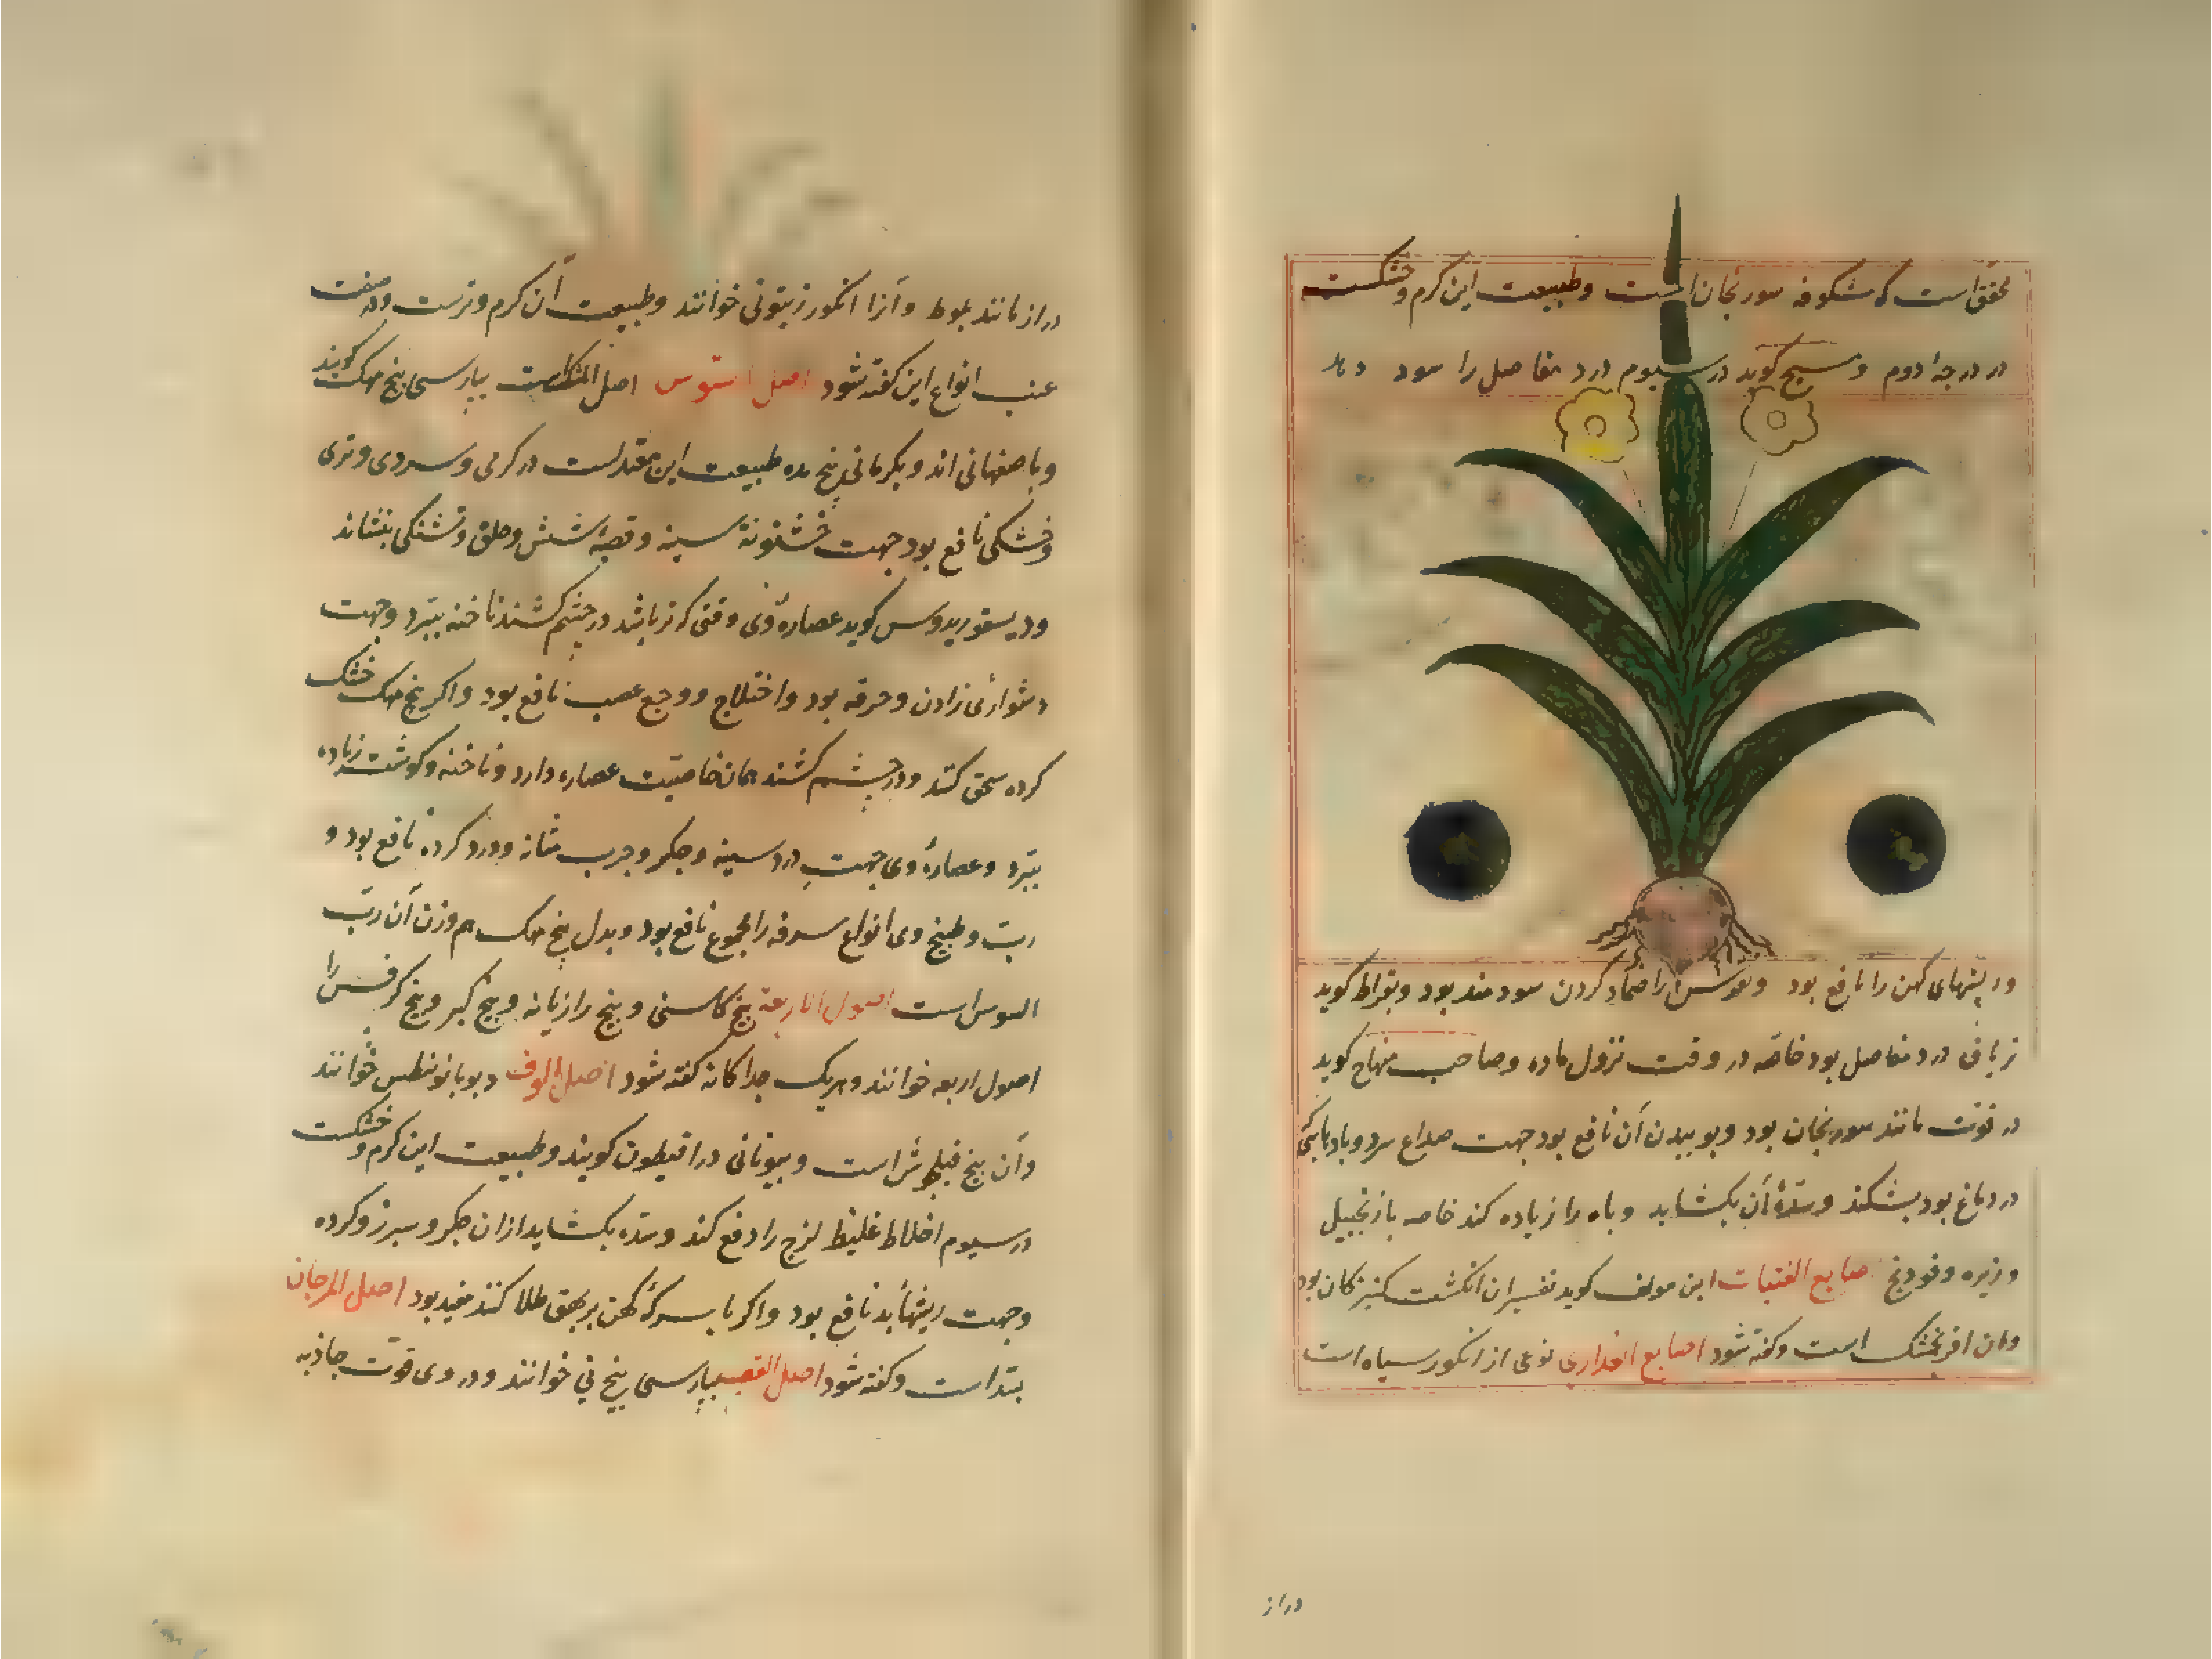 محقق است که شکوفه سورنجان است وطبیعت این کرم وخشکست
در درجهٔ دوم ومسیح کوید در سیوم درد مفاصل را سود دهد
وریشهای کهن را نافع بود ونقرس را ضماد کردن سودمند بود وبقراط کوید
تریاق درد مفاصل بود خاصه در وقت نزول ماده وصاحب منهاج کوید
در قوت مانند سورنجان بود وبوییدن آن نافع بود جهت صداع سرد وبادهایی که
در دماغ بود بشکند وسدهٔ آن بکشاید وباه را زیاده کند خاصه با زنجبیل
وزیره وفودنج اصابع الفتیات ابن مولف کوید تفسیر ان انکشت کنیزکان بود
وان افرنجمشک است وکفته شود اصابع العذاری نوعی از انکور سیاه است
دراز
دراز مانند بلوط وآنرا انکور زیتونی خوانند وطبیعت آن کرم وترست ودر صفت
عنب انواع این کفته شود اصل السوس اصل المتک است بپارسی بیخ مهک کویند
وباصفهانی اند وبکرمانی بیخ مده طبیعت این معتدلست در کرمی وسردی وتری
وخشکی نافع بود جهت خشونة سینه وقصبهٔ شش وحلق وتشنکی بنشاند
ودیسقوریدوس کوید عصارهٔ وی وقتی که تر باشد در چشم کشند ناخنه ببرد وجهت
دشواری زادن وحرقه بود واختلاج ووجع عصب نافع بود واکر بیخ مهک خشک
کرده سحق کنند ودر چشم کشند همان خاصیت عصاره دارد وناخنه وکوشت زیاده
ببرد وعصارهٔ وی جهت درد سینه وجکر وجرب مثانه ودرد کرده نافع بود و
ربّ وطبیخ وی انواع سرفه را مجموع نافع بود وبدل بیخ مهک هم وزن آن ربّ
السوس است اصول الاربعة بیخ کاسنی وبیخ رازیانه وبیخ کبر وبیخ کرفس را
اصول اربعه خوانند وهریک جداکانه کفته شود اصل اللوف دیوبانونطس خوانند
وآن بیخ فیلجوش است وبیونانی دراقیطون کویند وطبیعت این کرم وخشکست
در سیوم اخلاط غلیظ لزج را دفع کند وسده بکشاید از ان جکر وسپرز وکرده
وجهت ریشهأ بد نافع بود واکر با سرکهٔ کهن بر بهق طلا کنند مفید بود اصل المرجان
بتد است وکفته شود اصل القصب بپارسی بیخ نی خوانند ودر وی قوّت جاذبه